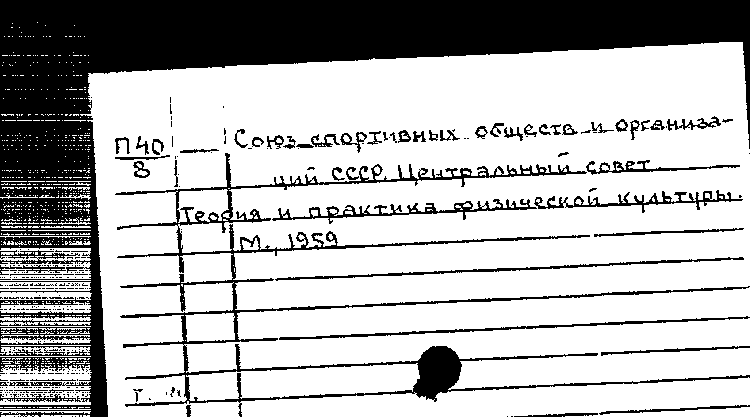 П40
8
Союз спортивных обществ и организа-
ций СССР. Центральный совет
Теория и практика физической культуры.
М., 1959